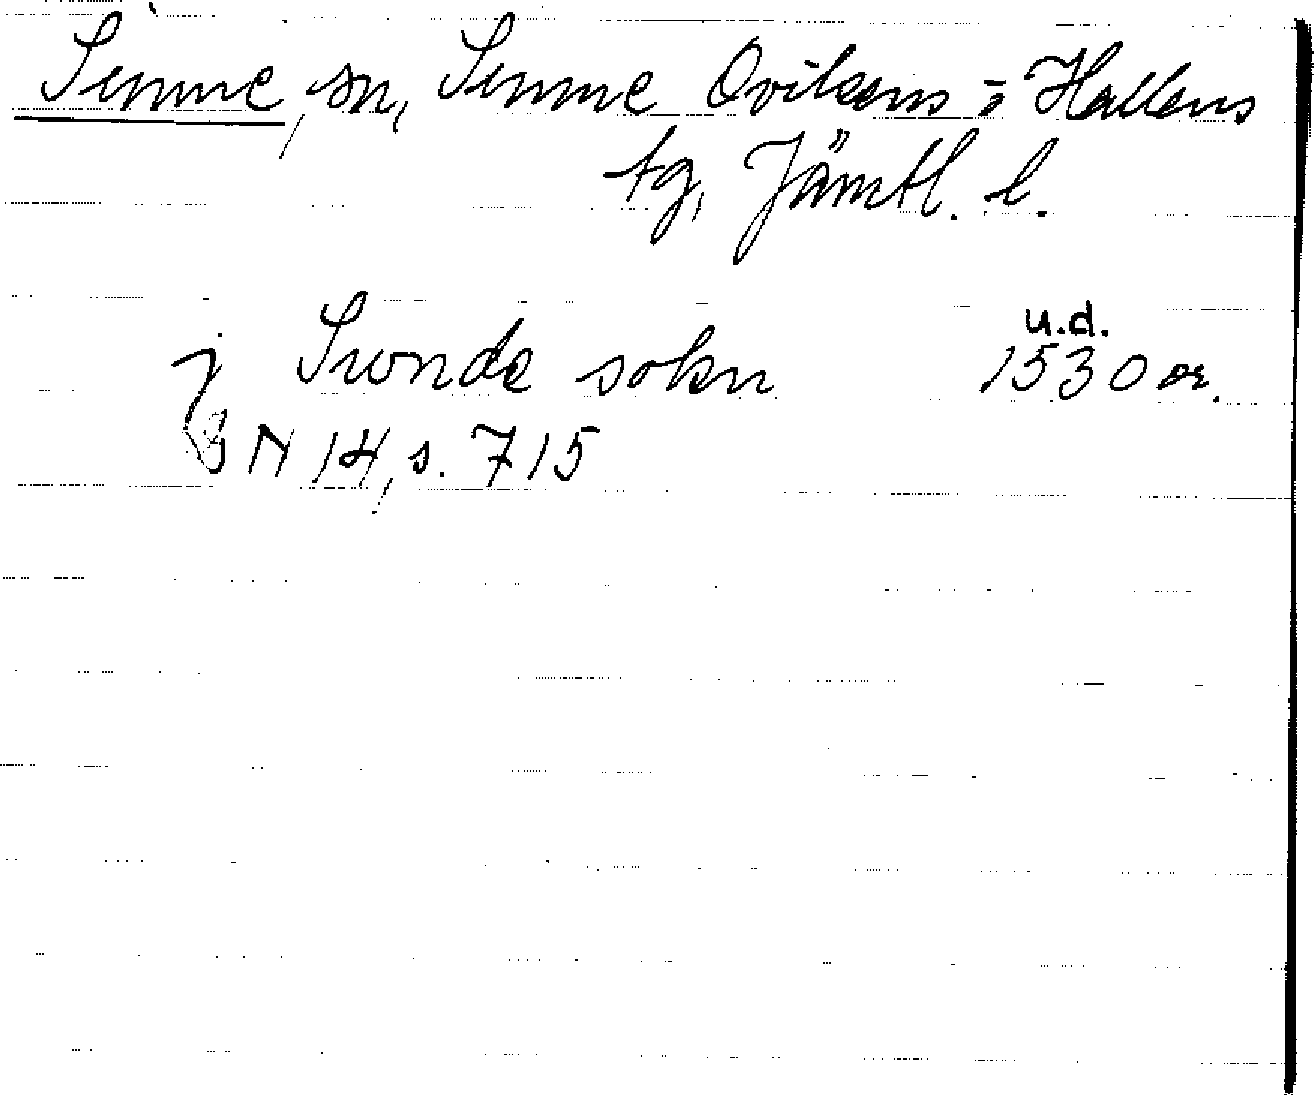 Sunne, sn, Sunne Ovikens o Hallens
tg, Jämtl. l.
u.d.
j Swnde sokn 1530 or.
DN 14, s. 715